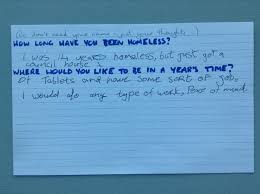 (we don't need your name, just your thoughts...)
HOW LONG HAVE YOU BEEN HOMELESS?
I was 14 years homeless, but just got a
council house
WHERE WOULD YOU LIKE TO BE IN A YEAR'S TIME?
Of Tablets and have some sort of job.
I would do any type of work, Peace of mind